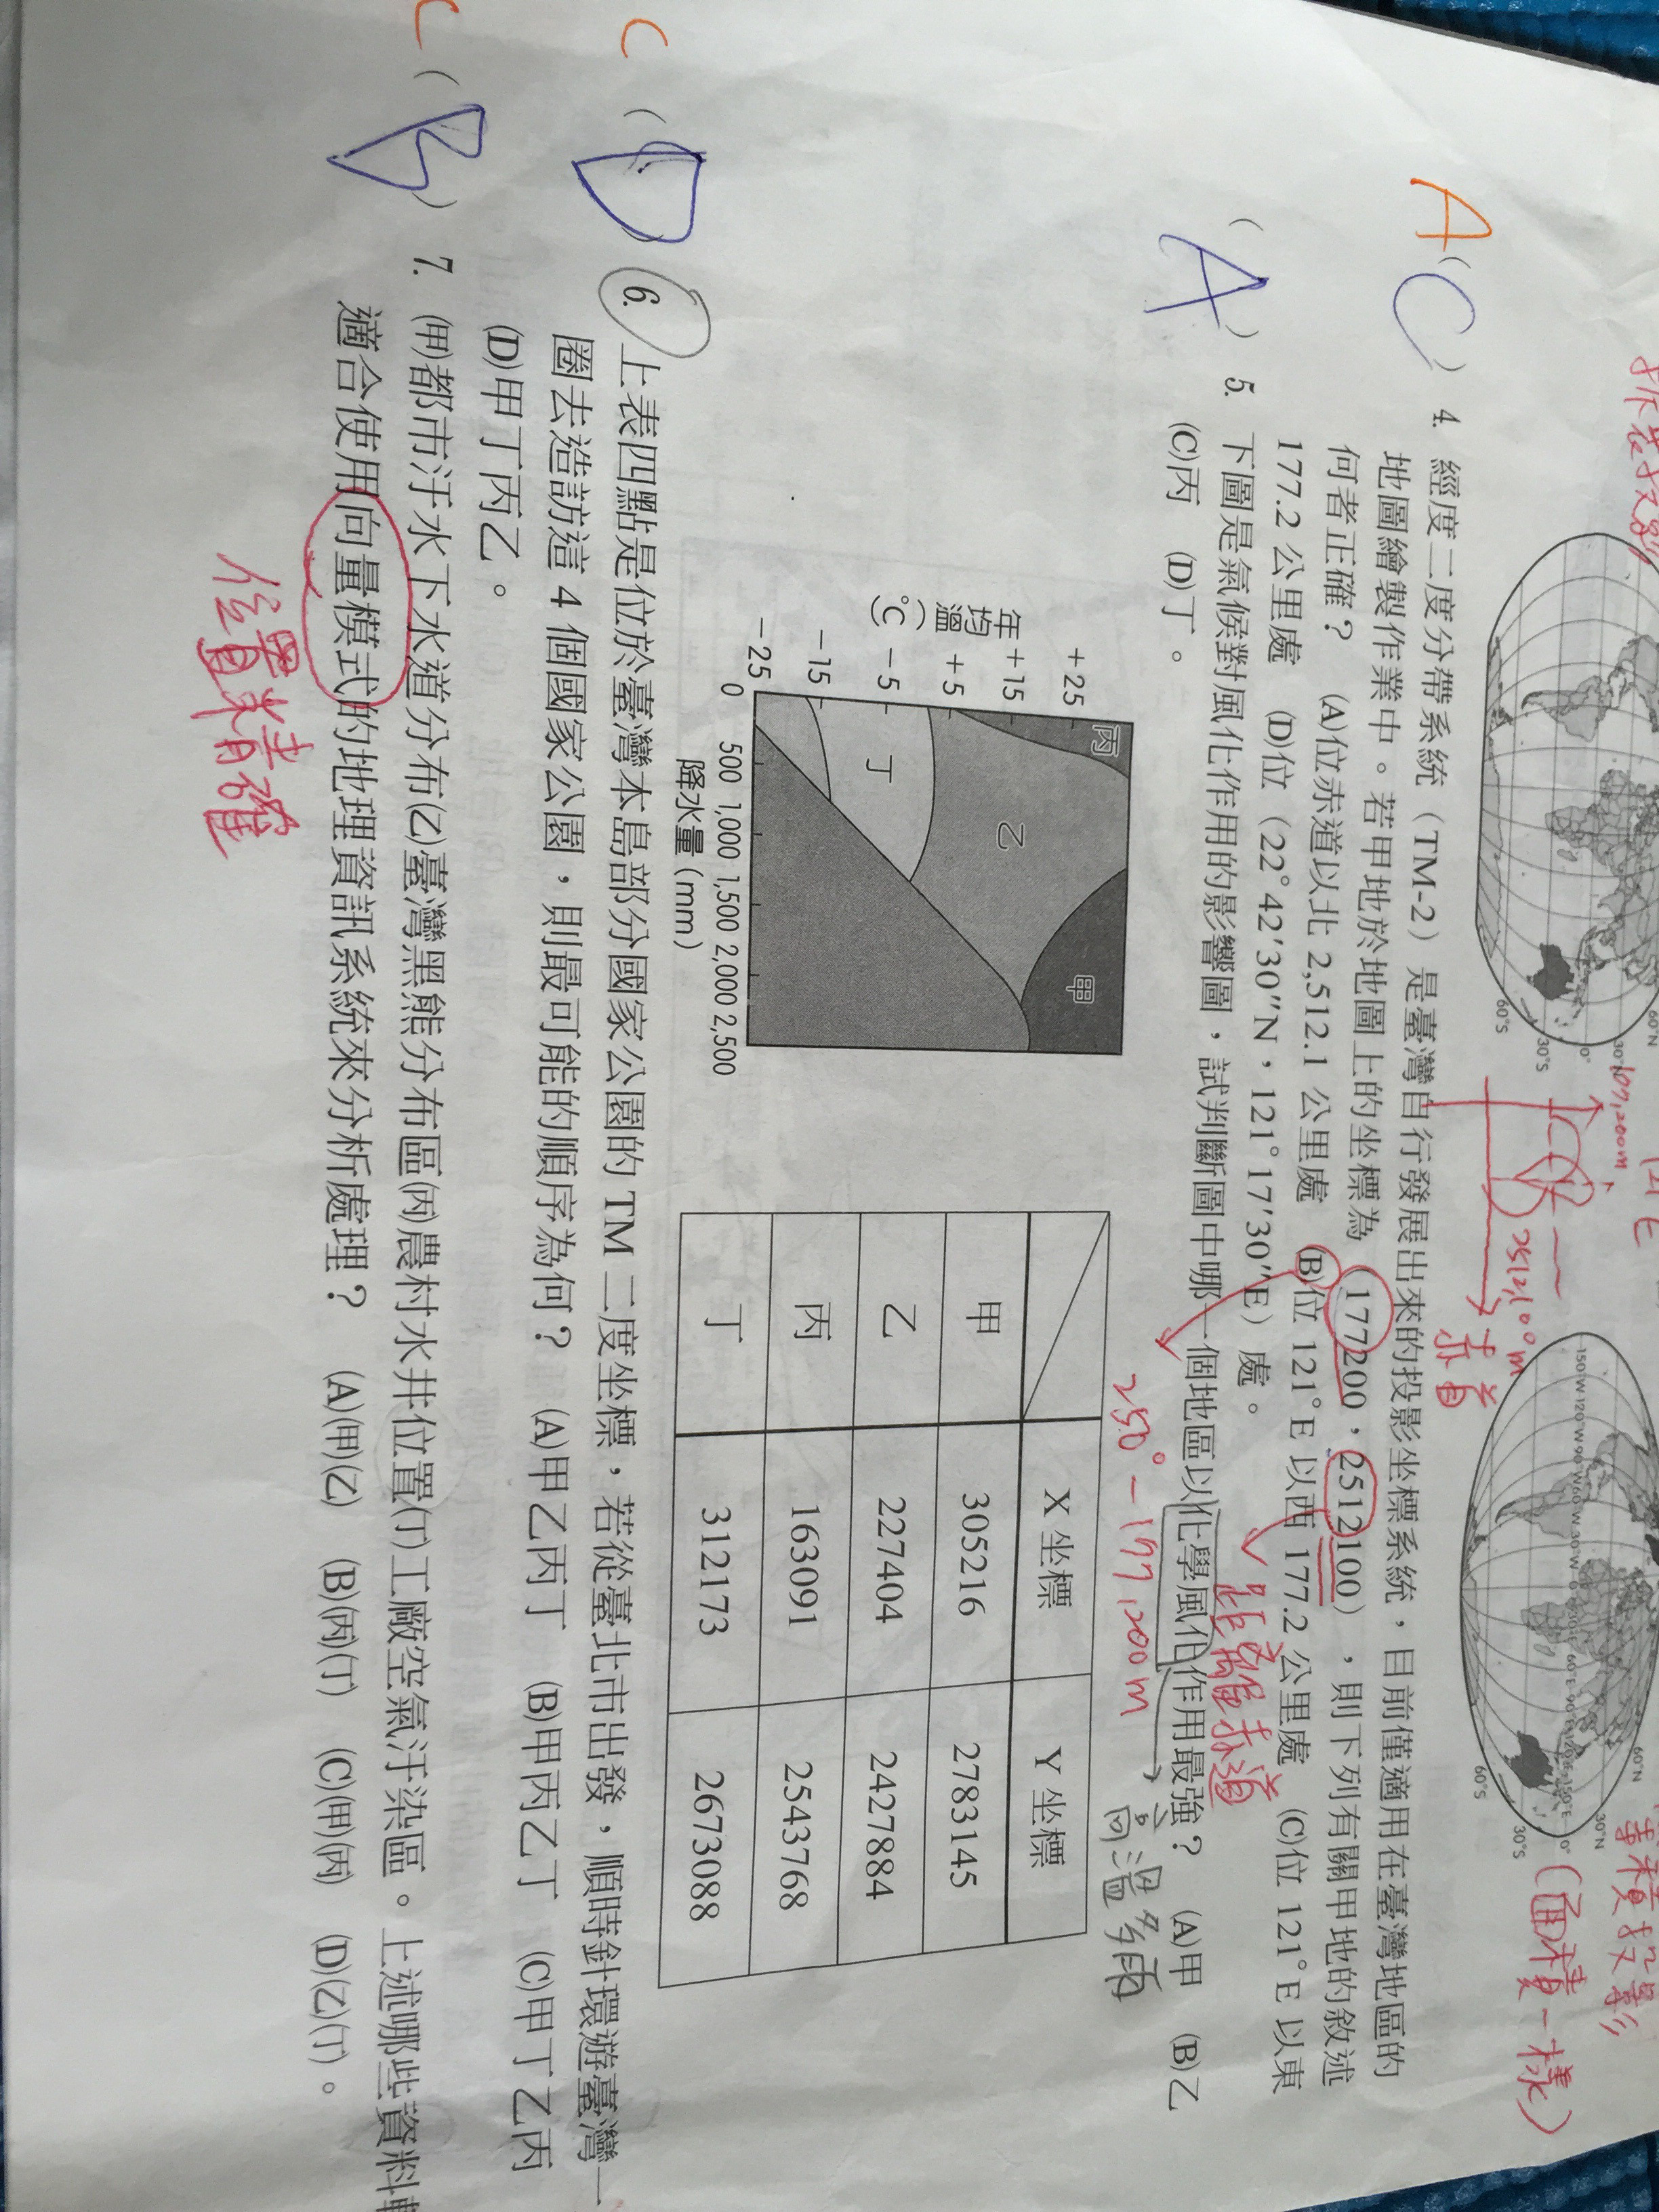 拆衷投影
60°N
30°N
0°
30°S
60°S
107,200m
2512100m
赤道
150°W 120°W 90°W 60°W 30°W 0° 30°E 60°E 90°E 120°E 150°E
60°N
30°N
0°
30°S
60°S
積投影
(面積一樣)
A
(C) 4. 經度二度分帶系統（TM-2）是臺灣自行發展出來的投影坐標系統，目前僅適用在臺灣地區的
地圖繪製作業中。若甲地於地圖上的坐標為（177200，2512100），則下列有關甲地的敘述
何者正確？ (A)位赤道以北 2,512.1 公里處 (B)位 121°E 以西 177.2 公里處 (C)位 121°E 以東
177.2 公里處 (D)位（22°42′30″N，121°17′30″E）處。
距離赤道
250 - 177,200m
(A) 5. 下圖是氣候對風化作用的影響圖，試判斷圖中哪一個地區以化學風化作用最強？ (A)甲 (B)乙
(C)丙 (D)丁。
高溫多雨
年均溫（°C）
+25
+15
+5
-5
-15
-25
丙
甲
乙
丁
0 500 1,000 1,500 2,000 2,500
降水量（mm）
X 坐標 Y 坐標
甲 305216 2783145
乙 227404 2427884
丙 163091 2543768
丁 312173 2673088
C
(D) 6. 上表四點是位於臺灣本島部分國家公園的 TM 二度坐標，若從臺北市出發，順時針環遊臺灣一
圈去造訪這 4 個國家公園，則最可能的順序為何？ (A)甲乙丙丁 (B)甲丙乙丁 (C)甲丁乙丙
(D)甲丁丙乙。
C
(B) 7. (甲)都市汙水下水道分布(乙)臺灣黑熊分布區(丙)農村水井位置(丁)工廠空氣汙染區。上述哪些資料
適合使用向量模式的地理資訊系統來分析處理？ (A)(甲)(乙) (B)(丙)(丁) (C)(甲)(丙) (D)(乙)(丁)。
位置精確